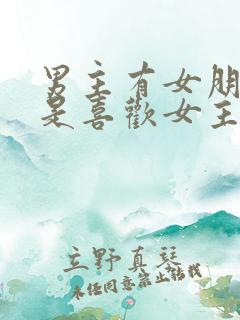 男主有女朋
是喜歡女主
立野真琴
未经同意禁止转载